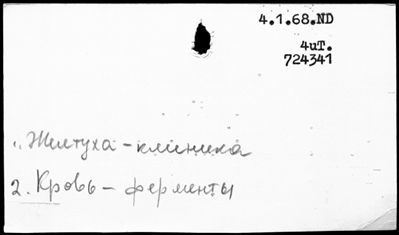 4.1.68.ND
4uT.
724341
1. Желтуха - клиника
2. Кровь - ферменты